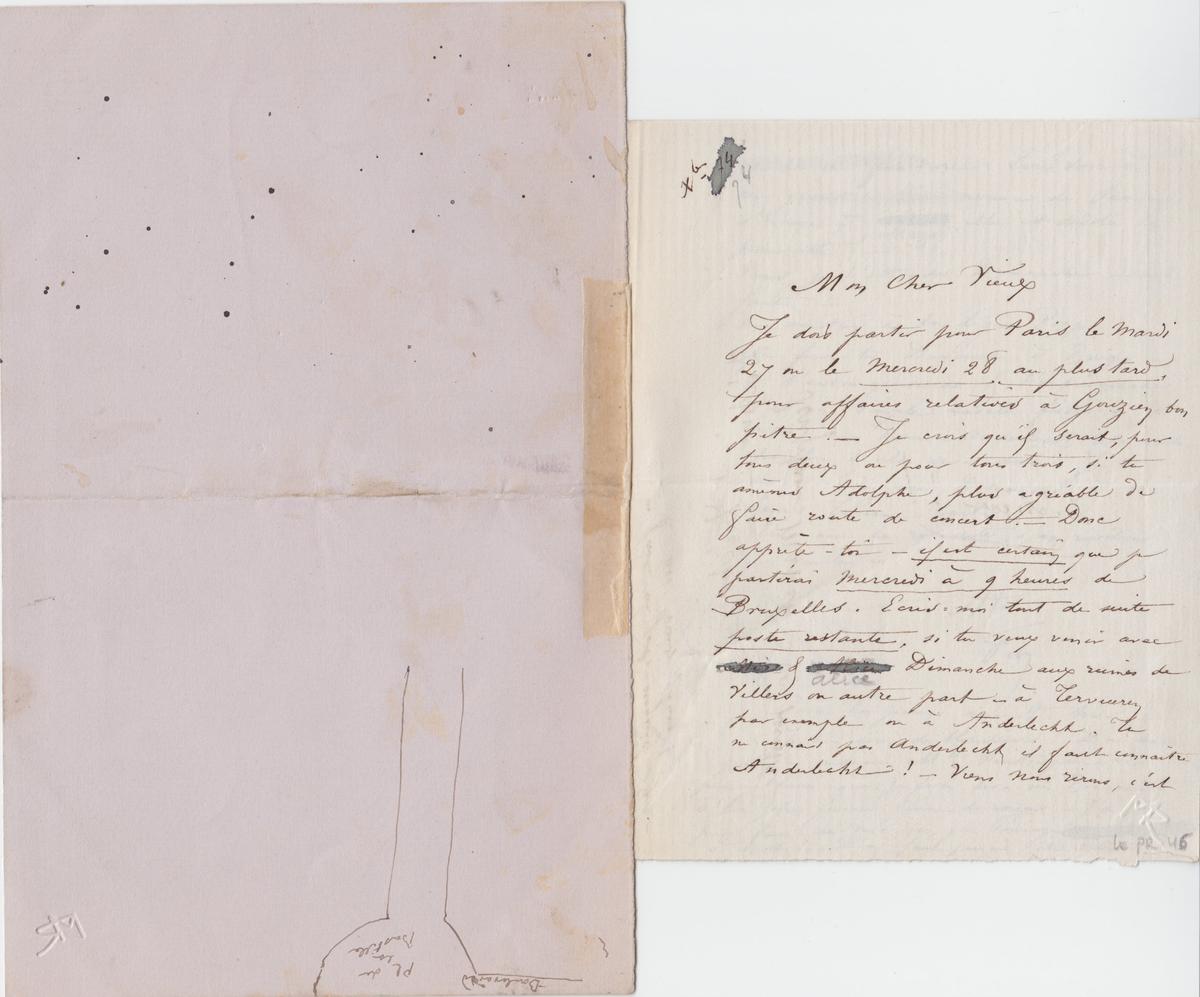 Mon Cher Vieux
Je dois partir pour Paris le Mardi
27 ou le Mercredi 28 au plus tard,
pour affaires relatives à Gouzien bon
pitre. — Je crois qu'il serait, pour
tous deux ou pour tous trois, si tu
amènes Adolphe, plus agréable de
faire route de concert. — Donc
apprête-toi — il est certain que je
partirai Mercredi à 9 heures de
Bruxelles. Ecris-moi tout de suite
poste restante, si tu veux venir avec
& Dimanche aux ruines de
alice
Villers ou autre part — à Tervueren
par exemple ou à Anderlecht. Tu
ne connais pas Anderlecht il faut connaître
Anderlecht ! — Viens nous rirons, c'est
Le PR 46
Pl de
la
Bastille
Boulevard